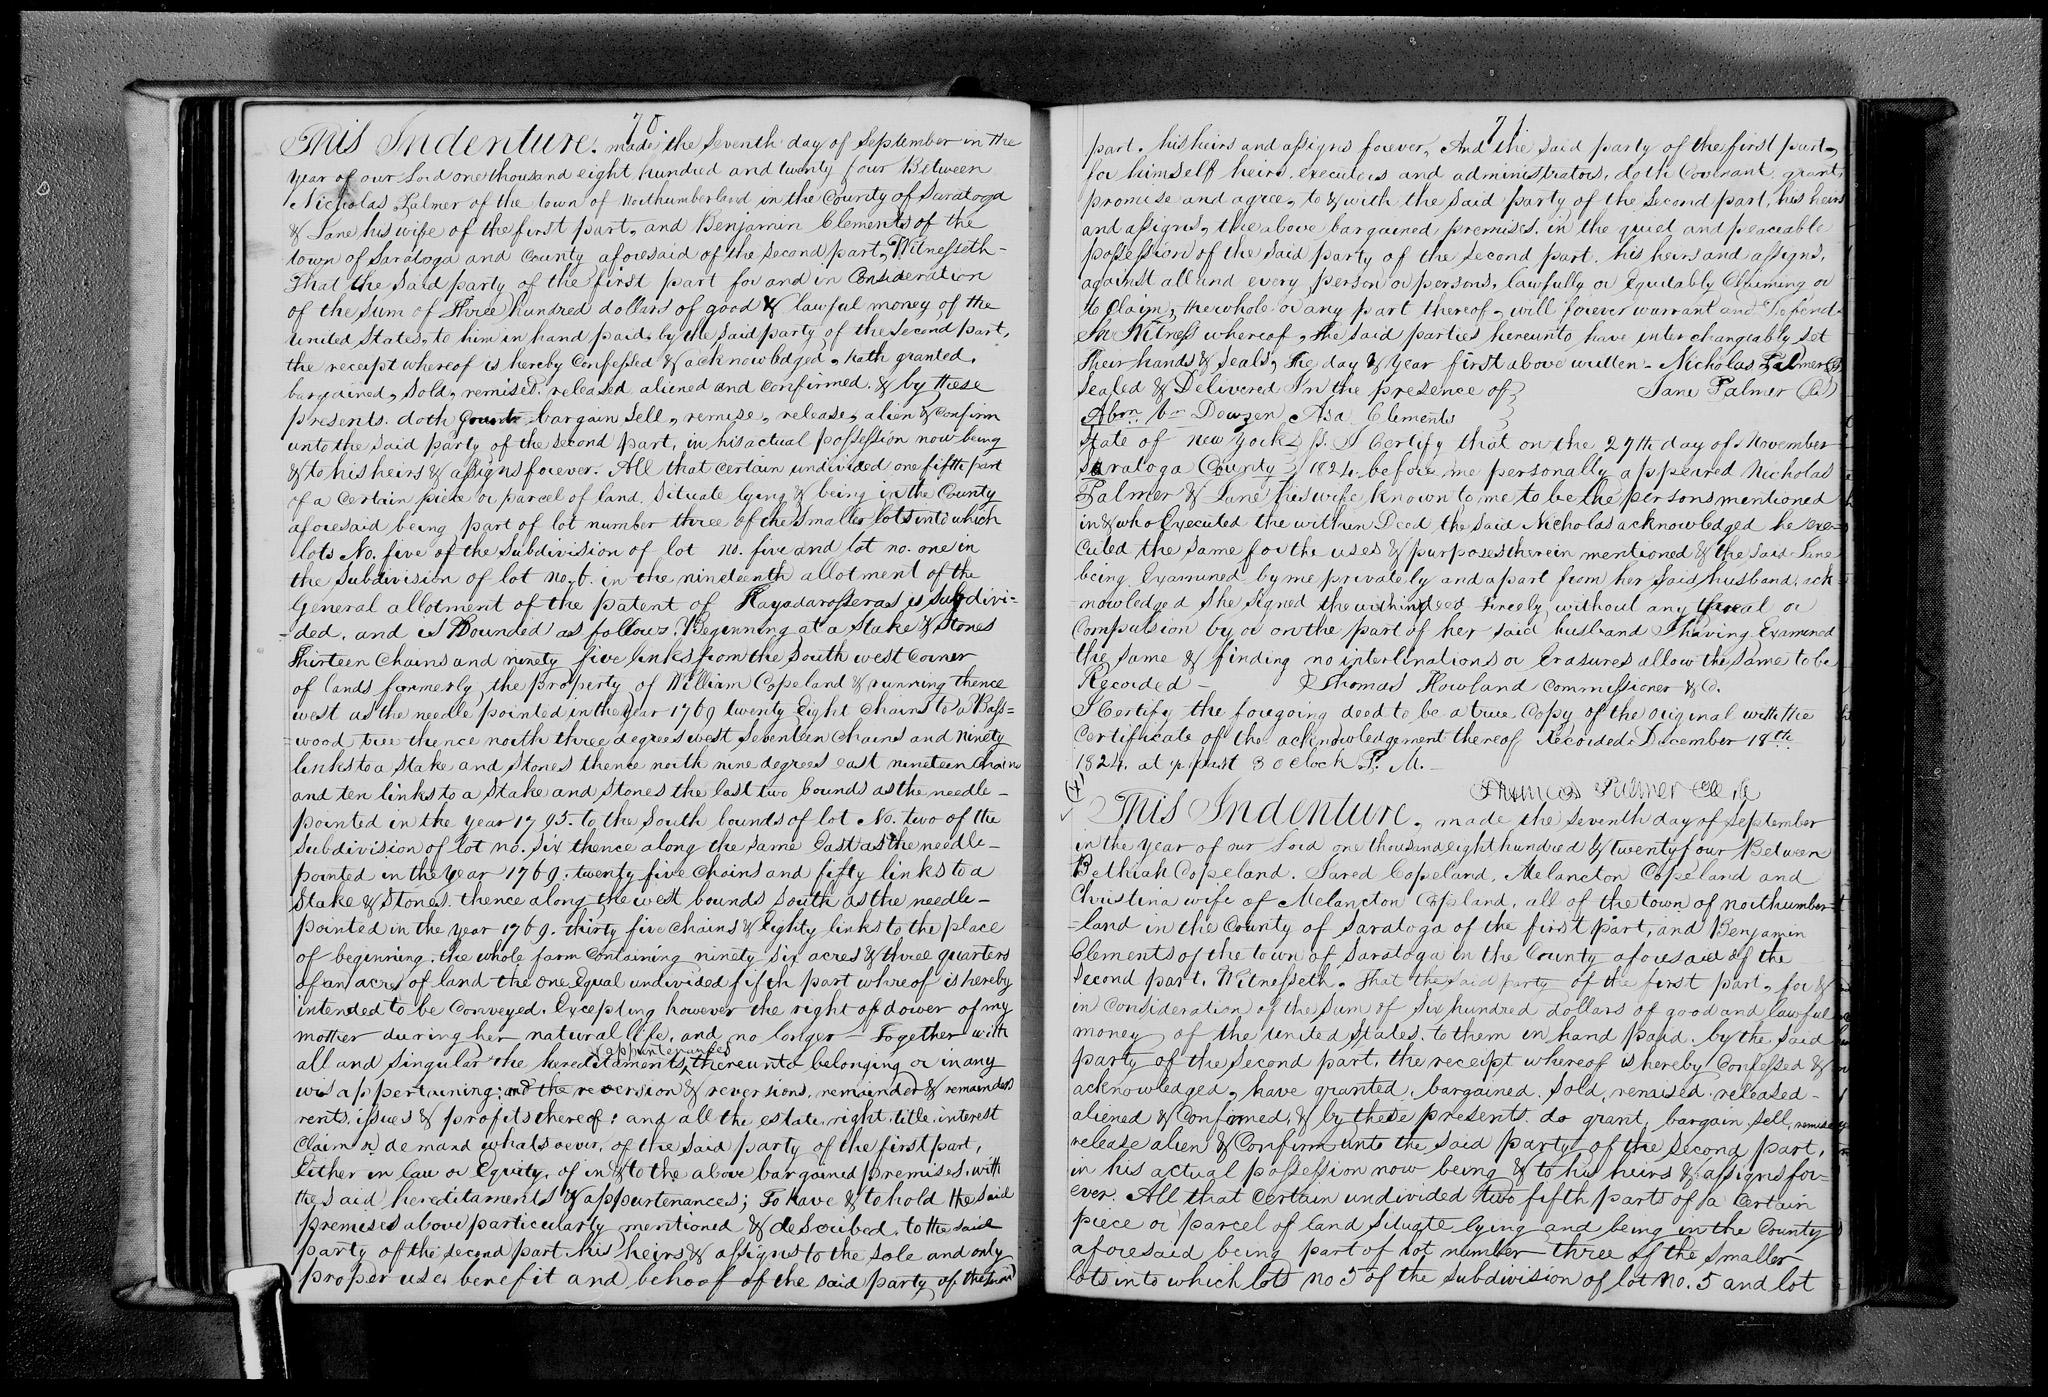 70
This Indenture. made the seventh day of September in the
year of our Lord one thousand eight hundred and twenty four Between
Nicholas Palmer of the town of Northumberland in the County of Saratoga
& Jane his wife of the first part, and Benjamin Clements of the
town of Saratoga and County aforesaid of the second part, Witnesseth-
That the said party of the first part for and in Consideration
of the sum of Three hundred dollars of good & lawful money of the
United States, to him in hand paid, by the said party of the second part,
the receipt whereof is hereby Confessed & acknowledged, hath granted,
bargained, sold, remised, released aliened and confirmed. & by these
presents. doth Grant bargain sell, remise, release, alien & Confirm
unto the said party of the second part, in his actual possession now being
& to his heirs & assigns forever. All that certain undivided one fifth part
of a certain piece or parcel of land, situate lying & being in the County
aforesaid being part of lot number three of the smaller lots into which
lots No. five of the subdivision of lot no. five and lot no. one in
the subdivision of lot no. 6. in the nineteenth allotment of the
General allotment of the patent of Kayadarosseras is subdivi-
-ded. and is Bounded as follows. Beginning at a stake & stones
Thirteen Chains and ninety five links from the South west Corner
of lands formerly the property of William Copeland & running thence
west as the needle pointed in the year 1769 twenty Eight Chains to a Bass=
=wood tree thence north three degrees west seventeen Chains and Ninety
links to a stake and stones thence north nine degrees east nineteen Chains
and ten links to a stake and stones the last two bounds as the needle-
pointed in the year 1795. to the South bounds of lot No. two of the
subdivision of lot no. six thence along the same East as the needle-
pointed in the year 1769. twenty five Chains and fifty links to a
Stake & Stones. thence along the west bounds South as the needle-
pointed in the year 1769. thirty five Chains & Eighty links to the place
of beginning. the whole farm Containing ninety six acres & three quarters
of an acre of land the one equal undivided fifth part whereof is hereby
intended to be Conveyed. Excepting however the right of dower of my
mother during her natural life, and no longer - Together with
all and singular the hereditaments & appurtenances thereunto belonging or in any
wis appertaining: and the reversion & reversions, remainder & remainders
rents, issues & profits thereof: and all the estate, right, title, interest
Claim or demand whatsoever, of the said party of the first part,
Either in law or Equity, of in & to the above bargained premises. with
the said hereditaments & appurtenances; To have & to hold the said
premises above particularly mentioned & described. to the said
party of the second part his heirs & assigns to the sole and only
proper use, benefit and behoof of the said party of the second
71
part. his heirs and assigns forever, And the said party of the first part,
for himself heirs. executors and administrators, doth Covenant grant,
promise and agree, to & with the said party of the second part, his heirs
and assigns, the above bargained premises. in the quiet and peaceable
possession of the said party of the second part. his heirs and assigns.
against all and every person or persons, lawfully or Equitably Claiming or
to Claim, the whole or any part thereof, will forever warrant and Defend.
In Witness whereof, the said parties hereunto have interchangably set
their hands & seals, the day & year first above written - Nicholas Palmer (LS)
sealed & Delivered In the presence of Jane Palmer (LS)
Abm. Van Douzen Asa Clements
State of New York ss. I Certify that on the 27th day of November
Saratoga County 1824. before me personally appeared Nicholas
Palmer & Jane his wife known to me to be the persons mentioned
in & who Executed the within Deed the said Nicholas acknowledged he exe-
cuted the same for the uses & purposes therein mentioned & the said Jane
being Examined by me privately and apart from her said husband, ack
-nowledged she signed the within deed freely without any threat or
Compulsion by or on the part of her said husband I having Examined
the same & finding no interlinations or Erasures allow the same to be
Recorded - Thomas Rowland Commissioner &c.
I Certify the foregoing deed to be a true Copy of the Original with the
Certificate of the acknowledgement thereof Recorded December 18th
1824. at past 3 oClock P. M. -
Thomas Palmer Clerk
This Indenture, made the seventh day of September
in the year of our Lord one thousand eight hundred & twenty four Between
Bethiah Copeland. Jared Copeland, Melancton Copeland and
Christina wife of Melancton Copland, all of the town of Northumber=
-land in the County of Saratoga of the first part, and Benjamin
Clements of the town of Saratoga in the County aforesaid of the
second part, Witnesseth. That the said party of the first part, for &
in Consideration of the sum of six hundred dollars of good and lawful
money of the United States. to them in hand paid. by the said
party of the second part, the receipt whereof is hereby Confessed &
acknowledged, have granted, bargained, sold, remised. released-
aliened & Confirmed, & by these presents. do grant, bargain, sell, remise
release alien & Confirm unto the said party of the second part,
in his actual possession now being & to his heirs & assigns for-
ever. All that certain undivided two fifth parts of a Certain
piece or parcel of land situate lying and being in the County
aforesaid being part of lot number three of the smaller
lots into which lots no 5 of the subdivision of lot no. 5 and lot